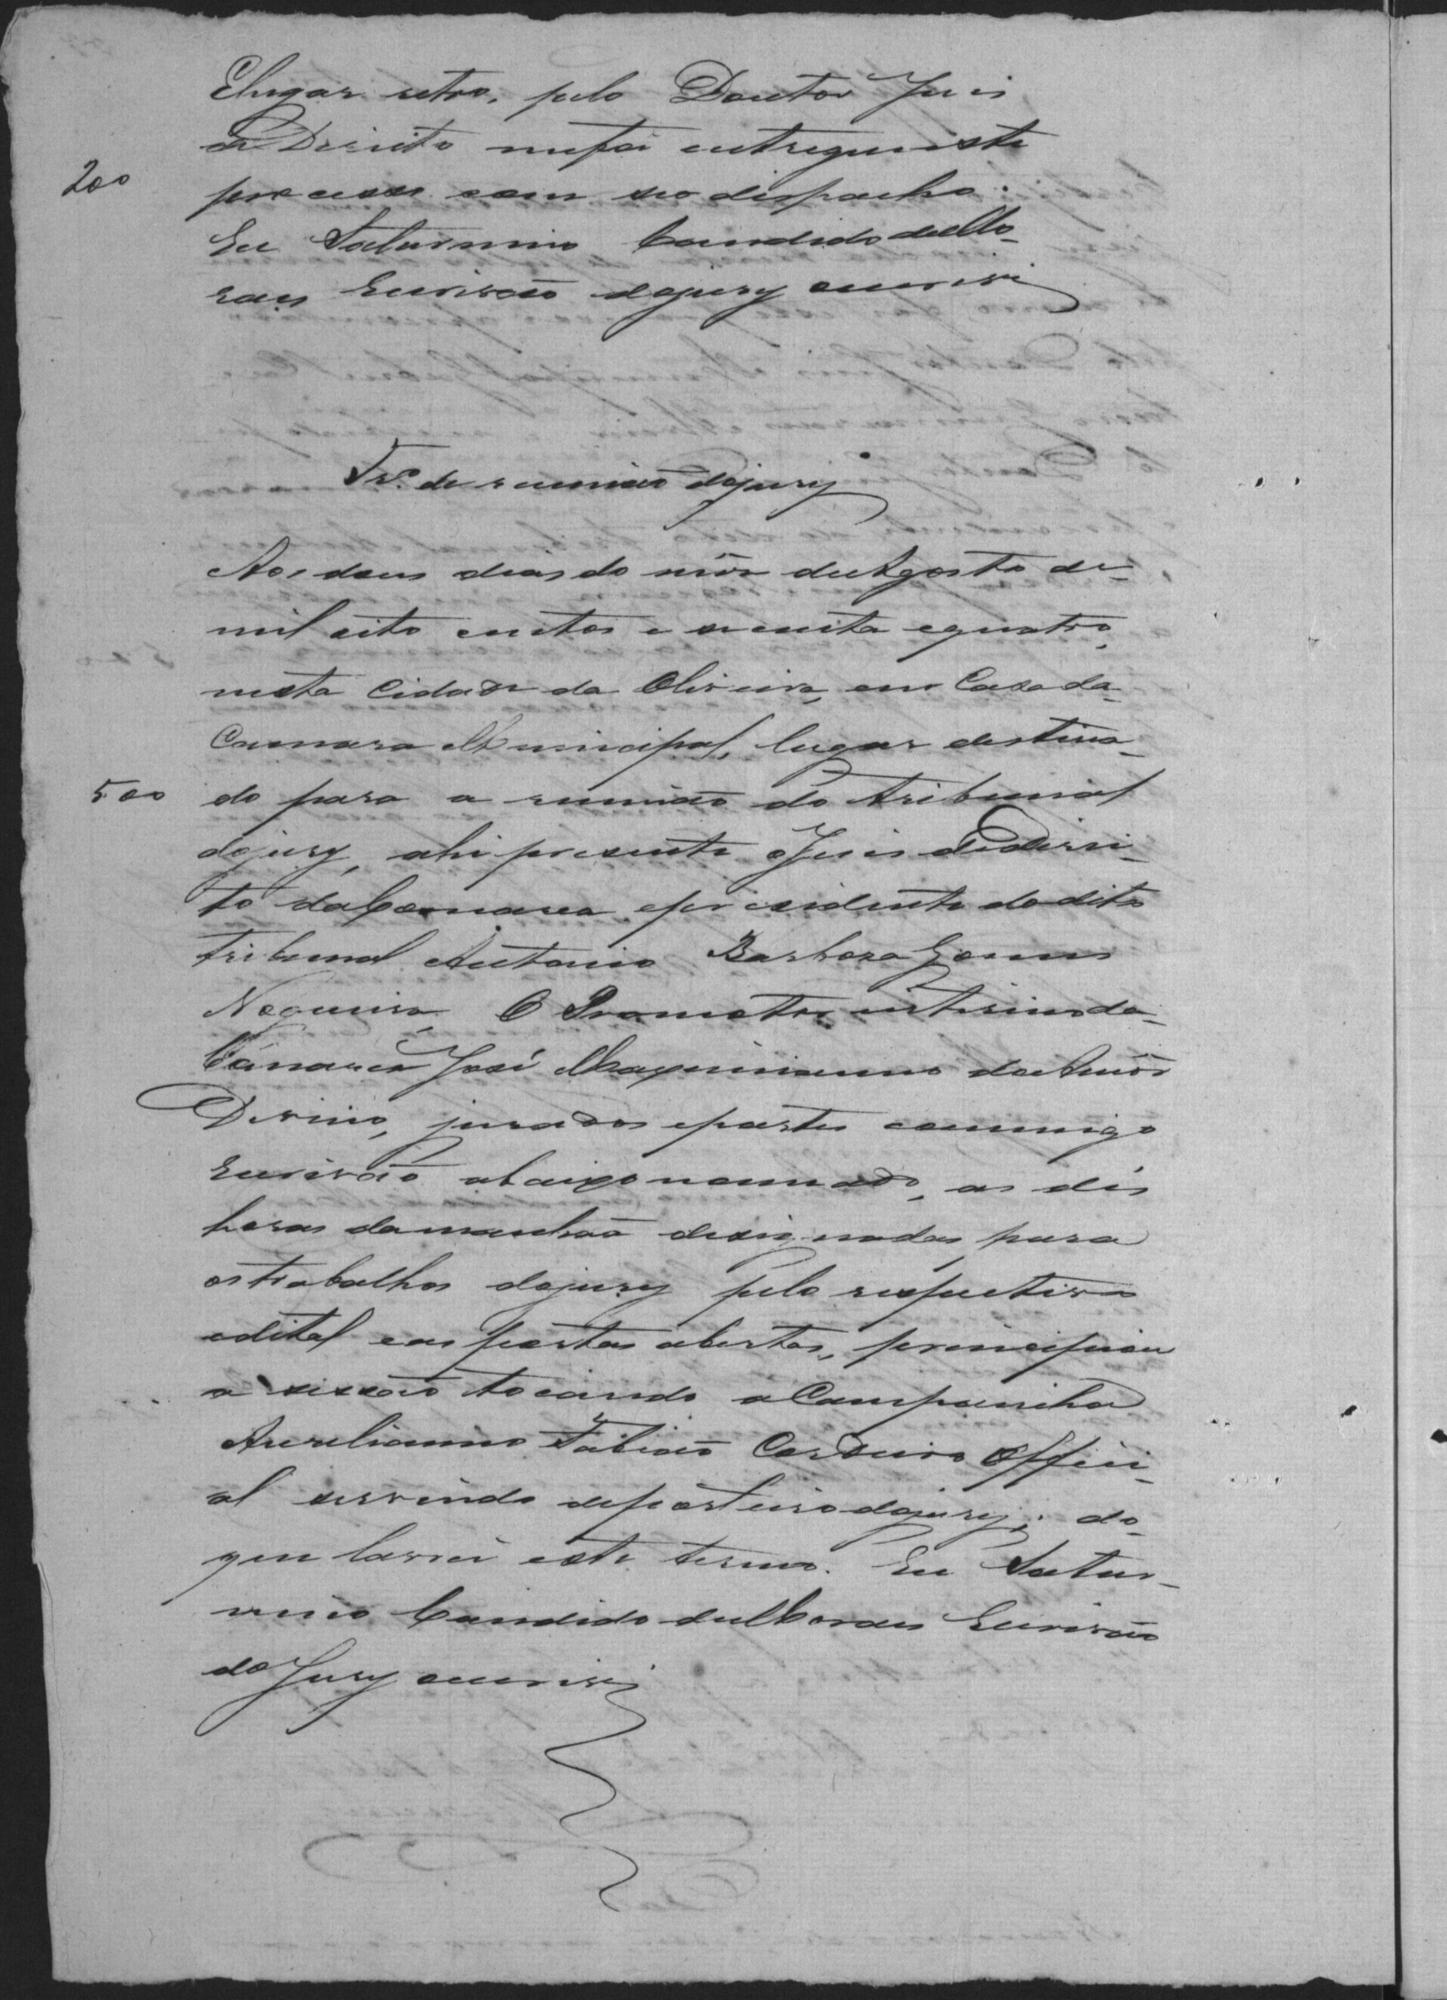 E lugar retro, pelo Doutor Juis
de Direito me foi entregue este
200
processo com seo dispacho.
Eu Saturnino Candido de Mo-
raes Escrivão do jury o escrivi
Tr.º de reunião do jury
Aos dous dias do mês de Agosto de
mil oito centos e secenta e quatro,
nesta Cidade da Oliveira, em Casa da
Camara Municipal, lugar destina-
500
do para a reunião do tribunal
do jury, ahi presente o Juis de Direi-
to da Comarca e presidente do dito
tribunal Antonio Barboza Gomes
Nogueira, O Promotor interino da
Cômarca José Maximianno do Amôr
Divino, jurados e partes commigo
Escrivão abaixo nomeado, as dés
horas da manhãa designadas para
os trabalhos do jury pelo respectivo
edital e as portas abertas, principiou
a sessão tocando a Campainha
Aurelianno Fabião Cordeiro Offici-
al servindo de porteiro do jury; do
que lavrei este termo. Eu Satur-
nino Candido de Moraes Escrivão
do Jury o escrivi